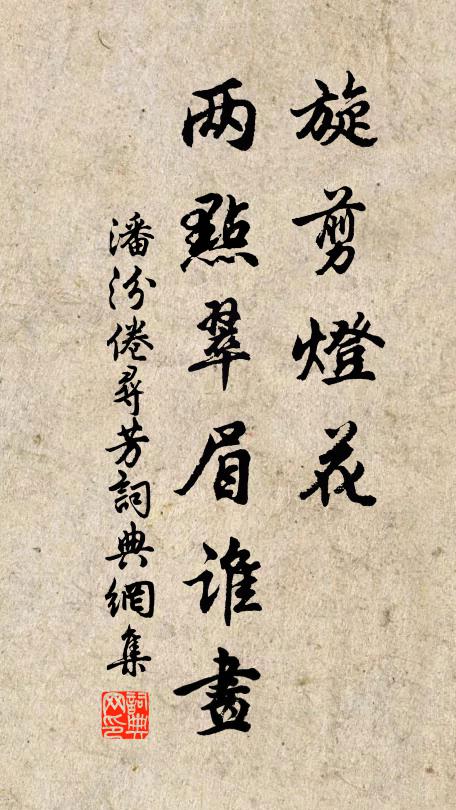 旋剪燈花
两點翠眉誰畫
潘汾倦尋芳詞典網集
詞典网印